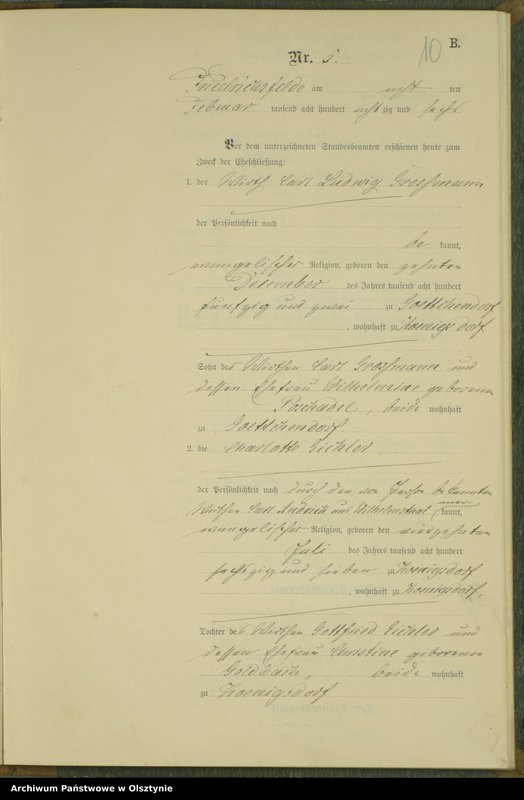 10 B.
Nr. 5.
Friedrichsfelde am acht ten
Februar tausend acht hundert achtzig und sechs
Vor dem unterzeichneten Standesbeamten erschienen heute zum
Zweck der Eheschließung:
1. der Wirth Carl Ludwig Grossmann
der Persönlichkeit nach
be kannt,
evangelischer Religion, geboren den zehnten
Dezember des Jahres tausend acht hundert
fünfzig und zwei zu Goettchendorf
, wohnhaft zu Koenigsdorf
Sohn des Wirthen Carl Grossmann und
dessen Ehefrau Wilhelmine geborenen
Poschadel, beide wohnhaft
zu Goettchendorf.
2. die Charlotte Eichler
der Persönlichkeit nach durch den von Person bekannten
Wirthen Carl aus Wilhelmsthal kannt,
evangelischer Religion, geboren den vierzehnten
Juli des Jahres tausend acht hundert
sechszig und sieben zu Koenigsdorf
, wohnhaft zu Koenigsdorf,
Tochter des Wirthen Gottfried Eichler und
dessen Ehefrau Christine geborenen
Goldbach, beide wohnhaft
zu Koenigsdorf
Archiwum Państwowe w Olsztynie